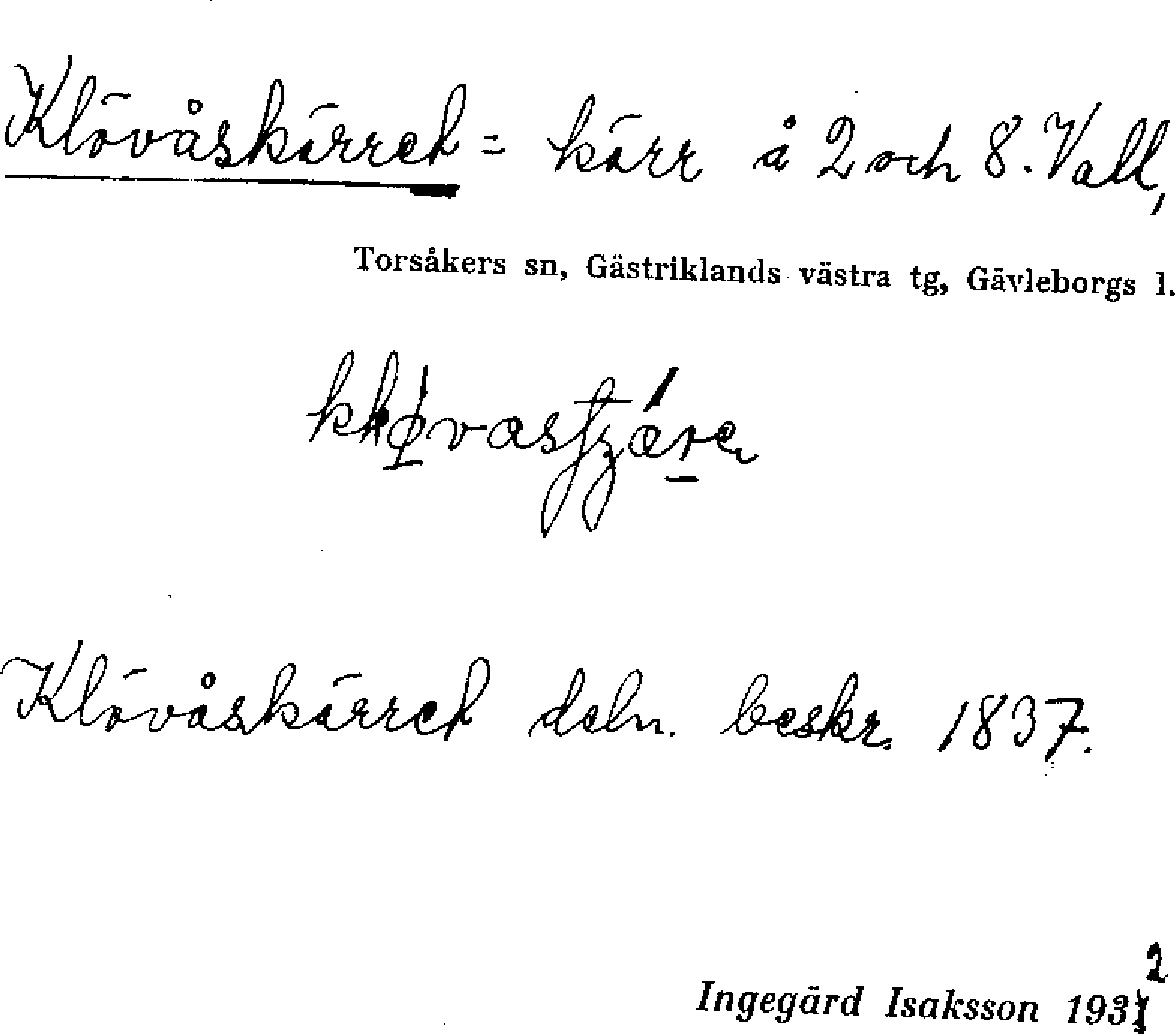 Klövåskärret = kärr å 2 och 8. Vall,
Torsåkers sn, Gästriklands västra tg, Gävleborgs l.
Klövåskärret deln. beskr. 1837.
Ingegärd Isaksson 1932